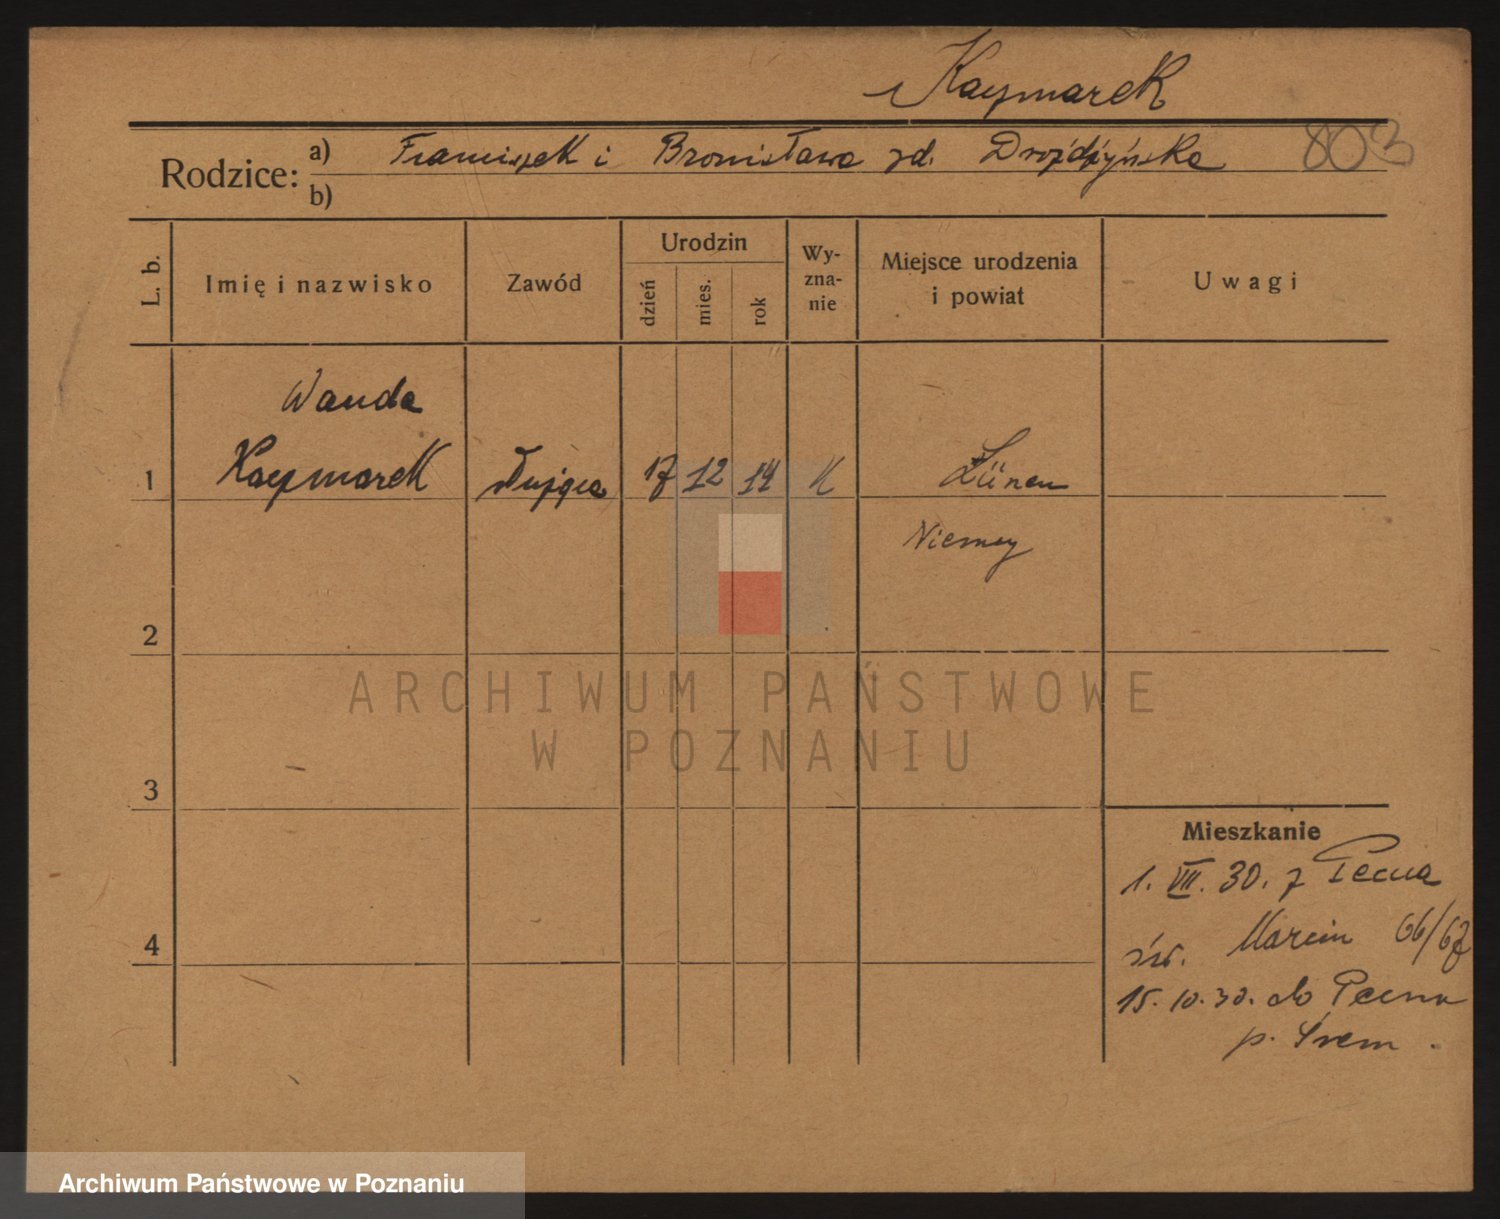 Kaczmarek
803
Rodzice: a) Franciszek i Bronisława zd. Drożdżyńska
b)
L. b.
Imię i nazwisko
Zawód
Urodzin
dzień
mies.
rok
Wy-
zna-
nie
Miejsce urodzenia
i powiat
Uwagi
Wanda
1 Kaczmarek służąca 17 12 14 K Lünen
Niemcy
2
3
4
ARCHIWUM PAŃSTWOWE
W POZNANIU
Mieszkanie
1. VII. 30. z Pecna
św. Marcin 66/67
15.10.30. do Pecna
p. Śrem.
Archiwum Państwowe w Poznaniu